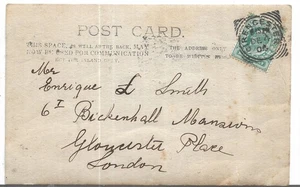 POST CARD.
THIS SPACE, AS WELL AS THE BACK, MAY
NOW BE USED FOR COMMUNICATION
THE ADDRESS ONLY
TO BE WRITTEN
Mr
Enrique L Smith
6 I Bickenhall Mansions
Gloucester Place
London